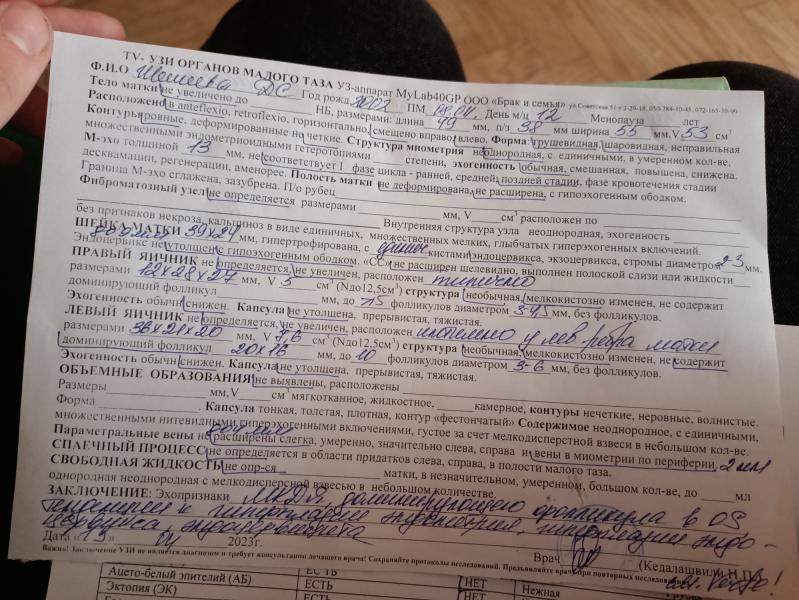 TV- УЗИ ОРГАНОВ МАЛОГО ТАЗА УЗ-аппарат MyLab40GP ООО «Брак и семья» ул.Советская 51 т 2-29-18, 050-784-10-45, 072-165-30-99
Ф.И.О ДС Год рожд 2002 ПМ День м/ц 12 Менопауза лет
Тело матки не увеличено до НБ, размерами: длина 49 мм, п/з 38 мм ширина 55 мм, V 53 см³
Расположено в anteflexio, retroflexio, горизонтально, смещено вправо, влево. Форма: грушевидная, шаровидная, неправильная
Контуры ровные, деформированные не четкие. Структура миометрия неоднородная, с единичными, в умеренном кол-ве.
множественными эндометриоидными гетеротопиями степени, эхогенность обычная, смешанная, повышена, снижена.
М-эхо толщиной 13 мм, не соответствует 1 фазе цикла - ранней, средней, поздней стадии, фазе кровотечения стадии
десквамации, регенерации, аменорее. Полость матки не деформирована, не расширена, с гипоэхогенным ободком.
Граница М-эхо сглажена, зазубрена. П/о рубец
Фиброматозный узел не определяется размерами мм, V см³ расположен по
Внутренняя структура узла неоднородная, эхогенность
без признаков некроза, кальциноз в виде единичных, множественных мелких, глыбчатых гиперэхогенных включений.
ШЕЙКА МАТКИ 39х24 мм, гипертрофирована, с един кистами эндоцервикса, экзоцервикса, стромы диаметром 2-3 мм.
Эндоцервикс не утолщен с гипоэхогенным ободком. не расширен щелевидно, выполнен полоской слизи или жидкости
ПРАВЫЙ ЯИЧНИК не определяется, не увеличен, расположен типично
размерами 12х28х27 мм, V 5 см³ (Nдо12,5см³) структура необычная, мелкокистозно изменен, не содержит
доминирующий фолликул мм, до 15 фолликулов диаметром 3-4 мм, без фолликулов.
Эхогенность обычн снижен. Капсула не утолщена, прерывистая, тяжистая.
ЛЕВЫЙ ЯИЧНИК не определяется, не увеличен, расположен у лев. ребра матки
размерами 38х21х20 мм, V 7,6 см³ (Nдо12,5см³) структура необычная, мелкокистозно изменен, не содержит
доминирующий фолликул 20х16 мм, до 10 фолликулов диаметром 3-6 мм, без фолликулов.
Эхогенность обычн снижен. Капсула не утолщена, прерывистая, тяжистая.
ОБЪЕМНЫЕ ОБРАЗОВАНИЯ не выявлены, расположены
Размеры мм, V см³ мягкотканное, жидкостное, камерное, контуры нечеткие, неровные, волнистые.
Форма . Капсула тонкая, толстая, плотная, контур «фестончатый» Содержимое неоднородное, с единичными,
множественными нитевидными гиперэхогенными включениями, густое за счет мелкодисперстной взвеси в небольшом кол-ве.
Параметральные вены не расширены слегка, умеренно, значительно слева, справа и вены в миометрии по периферии, 2 мм
СПАЕЧНЫЙ ПРОЦЕСС не определяется в области придатков слева, справа, в полости малого таза.
СВОБОДНАЯ ЖИДКОСТЬ не опр-ся матки, в незначительном, умеренном, большом кол-ве, до мл
однородная неоднородная с мелкодисперсной взвесью в небольшом количестве.
ЗАКЛЮЧЕНИЕ: Эхопризнаки доминирующего фолликула в
гиперплазии эндометрия, гиперплазии эндо-
цервикса,
Дата «13» 2023г. Врач (Кедалашвили Н.П.
Важно! Заключение УЗИ не является диагнозом и требует консультации лечащего врача! Сохраняйте протоколы исследований. Предъявляйте врачу при повторных исследован
Ацето-белый эпителий (АБ) ЕСТЬ НЕТ Нежная
Эктопия (ЭК) ЕСТЬ НЕТ